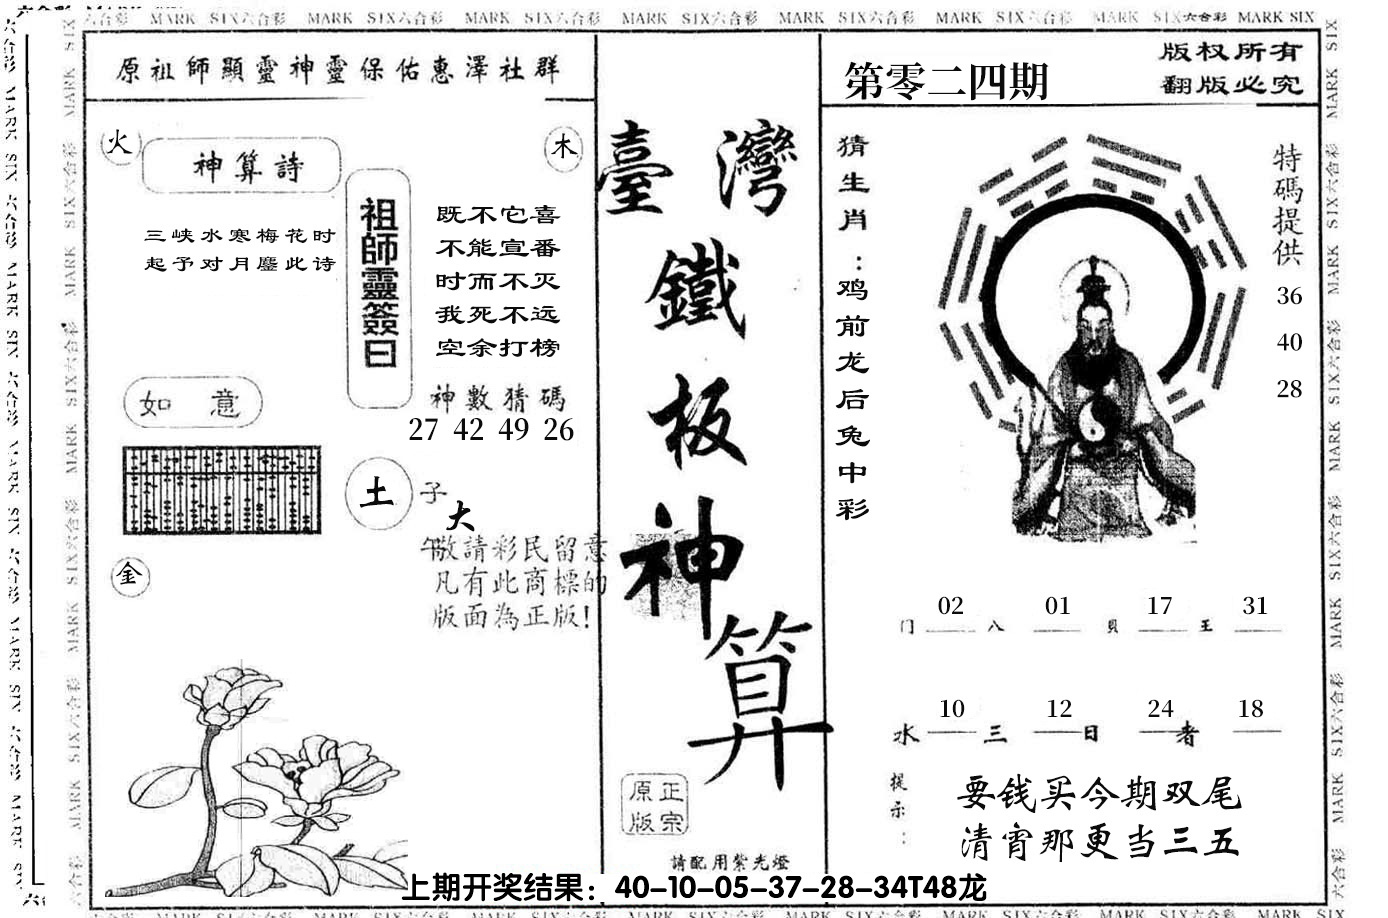 六合彩 MARK SIX六合彩 MARK SIX六合彩 MARK SIX六合彩 MARK SIX六合彩 MARK SIX六合彩 MARK SIX六合彩 MARK SIX六合彩 MARK SIX
原祖師顯靈神靈保佑惠澤社群
火
神算詩
木
三峡水寒梅花时
起予对月鏖此诗
祖師靈簽曰
既不它喜
不能宣番
时而不灭
我死不远
空余打榜
如 意
神數猜碼
27 42 49 26
土
子
大
午
敬請彩民留意
凡有此商標的
版面為正版!
金
臺灣
鐵
板
神
算
正宗
原版
請配用紫光燈
第零二四期
版权所有
翻版必究
猜生肖：鸡前龙后兔中彩
特碼提供
36
40
28
02 01 17 31
门 八 贝 王
10 12 24 18
水 三 日 者
提示：
要钱买今期双尾
清宵那更当三五
上期开奖结果：40-10-05-37-28-34T48龙